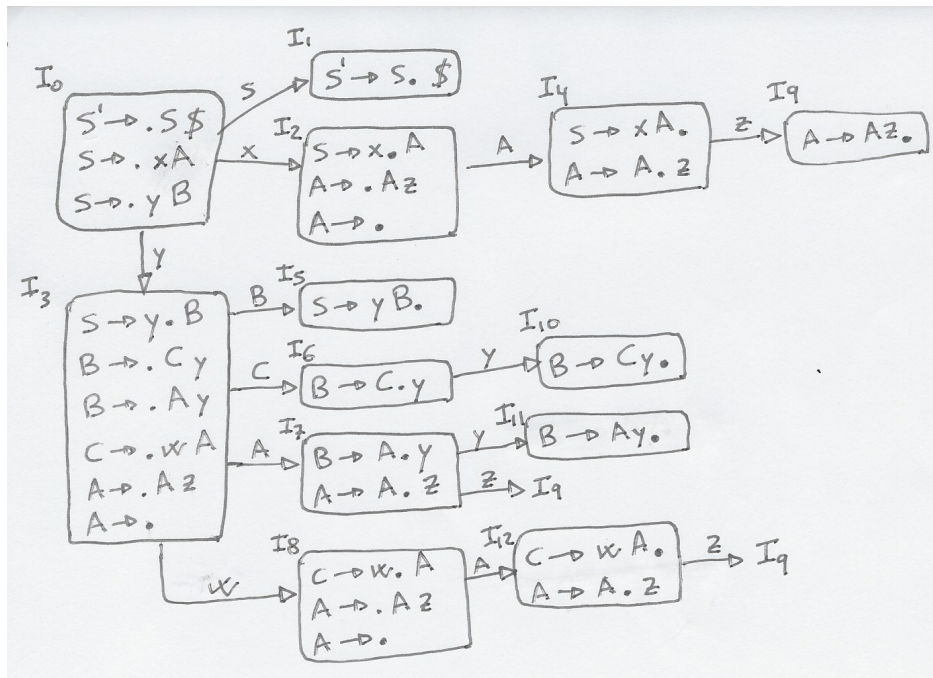 I0
S' → .S$
S → . xA
S → . y B
S
I1
S' → S. $
x
I2
S → x. A
A → . Az
A → .
A
I4
S → xA.
A → A. z
z
I9
A → Az.
y
I3
S → y. B
B → . C y
B → . A y
C → . w A
A → . A z
A → .
B
I5
S → y B.
C
I6
B → C. y
y
I10
B → C y.
A
I7
B → A. y
A → A. z
y
I11
B → A y.
z
I9
w
I8
C → w. A
A → . A z
A → .
A
I12
C → w A.
A → A. z
z
I9